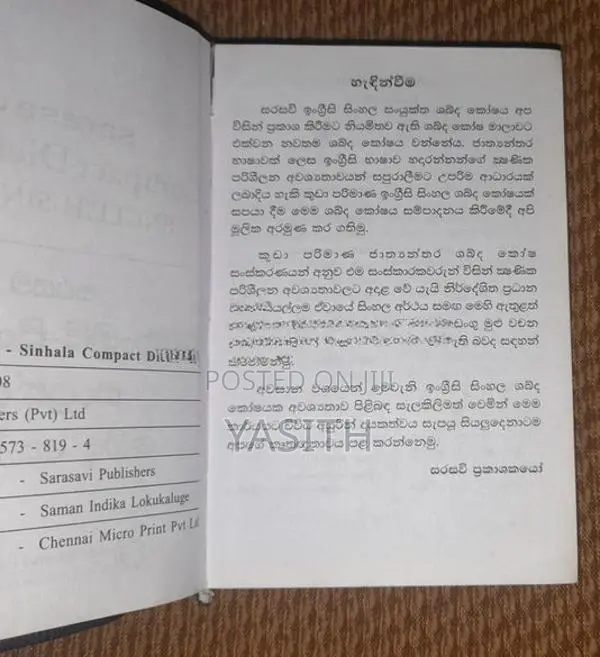 - Sinhala Compact
08
ers (Pvt) Ltd
573 - 819 - 4
- Sarasavi Publishers
- Saman Indika Lokukaluge
- Chennai Micro Print Pvt
හැඳින්වීම
සරසවි ඉංග්‍රීසි සිංහල සංයුක්ත ශබ්ද කෝෂය අප
විසින් ප්‍රකාශ කිරීමට නියමිතව ඇති ශබ්ද කෝෂ මාලාවට
එක්වන නවතම ශබ්ද කෝෂය වන්නේය. ජාත්‍යන්තර
භාෂාවක් ලෙස ඉංග්‍රීසි භාෂාව හදාරන්නන්ගේ ක්‍ෂණික
පරිශීලන අවශ්‍යතාවයන් සපුරාලීමට උපරිම ආධාරයක්
ලබාදිය හැකි කුඩා පරිමාණ ඉංග්‍රීසි සිංහල ශබ්ද කෝෂයක්
සපයා දීම මෙම ශබ්ද කෝෂය සම්පාදනය කිරීමේදී අපි
මූලික අරමුණ කර ගතිමු.
කුඩා පරිමාණ ජාත්‍යන්තර ශබ්ද කෝෂ
සංස්කරණයන් අනුව එම සංස්කාරකවරුන් විසින් ක්‍ෂණික
පරිශීලන අවශ්‍යතාවලට අදාළ වේ යැයි නිර්දේශිත ප්‍රධාන
ඒවායේ සිංහල අර්ථය සමඟ මෙහි ඇතුළත්
මුළු වචන
ඇති බවද සඳහන්
POSTED ON JIJI
අවසාන වශයෙන් මෙවැනි ඉංග්‍රීසි සිංහල ශබ්ද
කෝෂයක අවශ්‍යතාව පිළිබඳ සැලකිලිමත් වෙමින් මෙම
YASITH
දායකත්වය සැපයූ සියලුදෙනාටම
අපගේ කෘතඥතාවය පළ කරන්නෙමු.
සරසවි ප්‍රකාශකයෝ